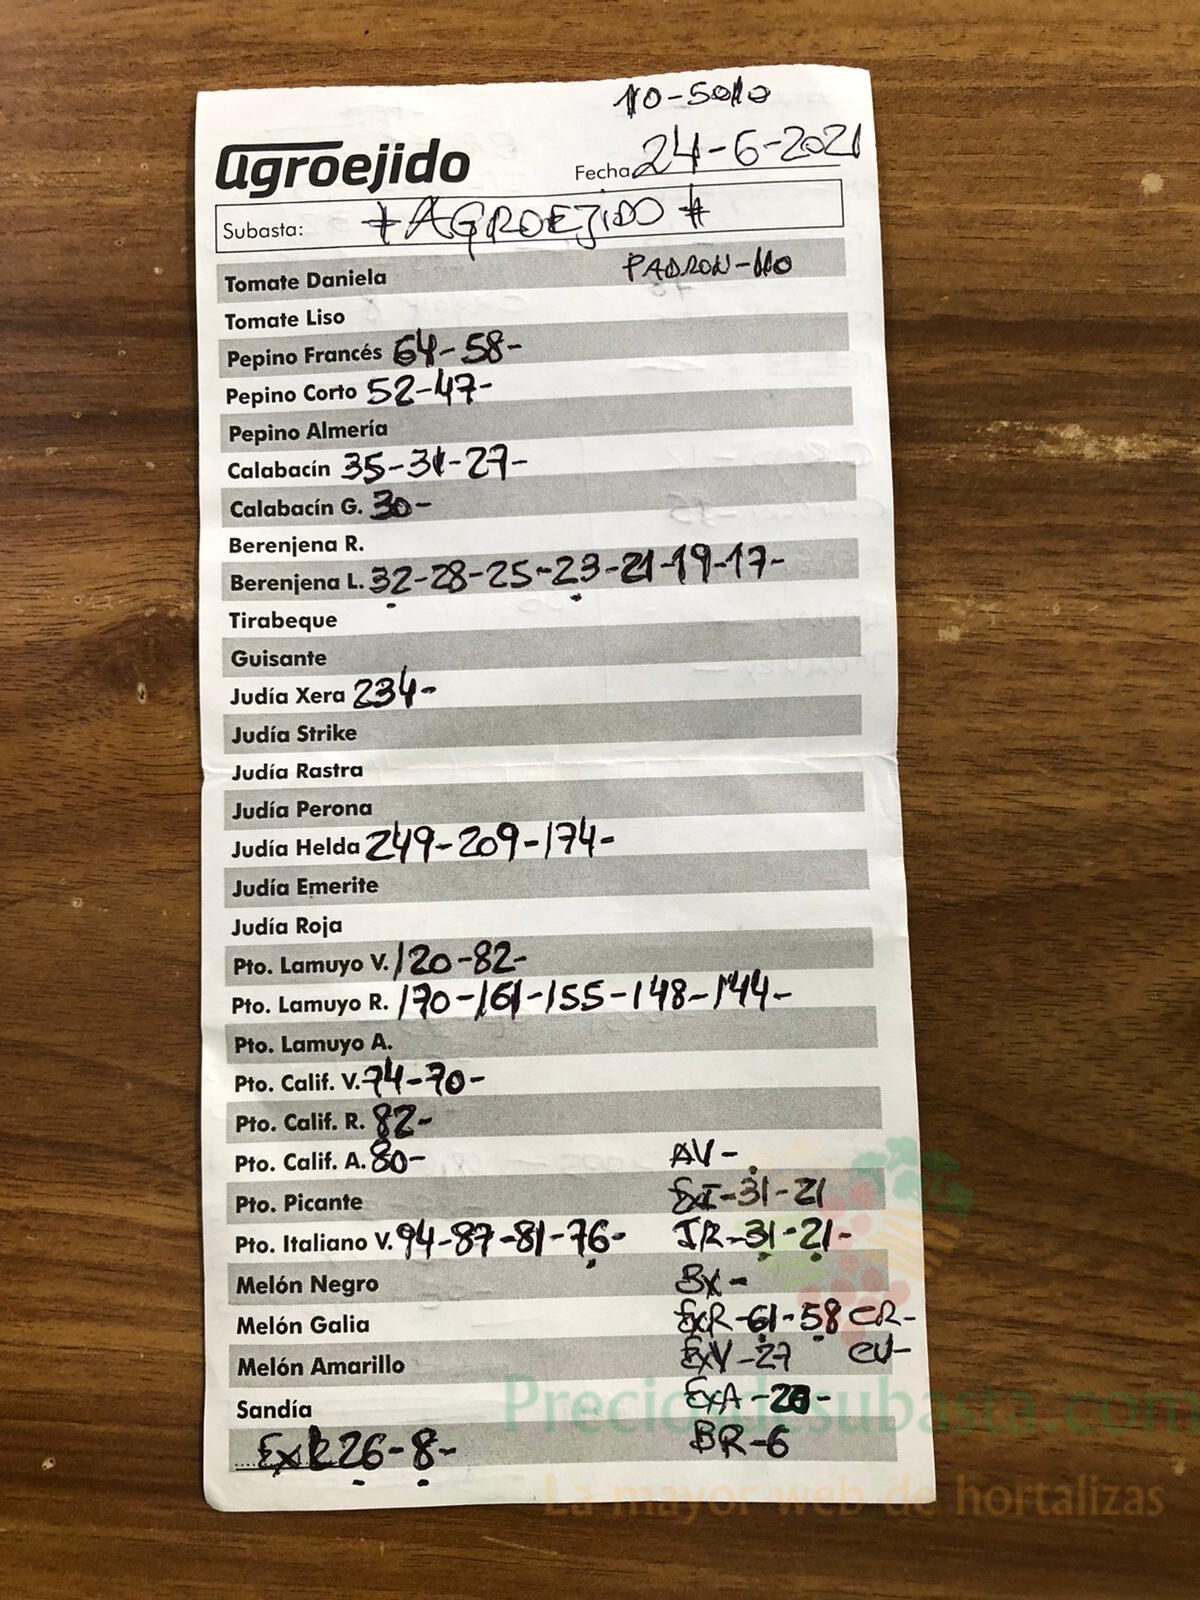 10-5010
agroejido
Fecha 24-6-2021
Subasta: #AGROEJIDO#
Tomate Daniela PADRON-110
Tomate Liso
Pepino Francés 64-58-
Pepino Corto 52-47-
Pepino Almería
Calabacín 35-31-27-
Calabacín G. 30-
Berenjena R.
Berenjena L. 32-28-25-23-21-19-17-
Tirabeque
Guisante
Judía Xera 234-
Judía Strike
Judía Rastra
Judía Perona
Judía Helda 249-209-174-
Judía Emerite
Judía Roja
Pto. Lamuyo V. 120-82-
Pto. Lamuyo R. 170-161-155-148-144-
Pto. Lamuyo A.
Pto. Calif. V. 74-70-
Pto. Calif. R. 82-
Pto. Calif. A. 80- AV-
Pto. Picante ExI-31-21
Pto. Italiano V. 94-87-81-76- IR-31-21-
Melón Negro BX-
Melón Galia ExR-61-58 CR-
Melón Amarillo ExV-27 CV-
Sandía ExA-
26-8- BR-6
Preciosdesubasta.com
La mayor web de hortalizas